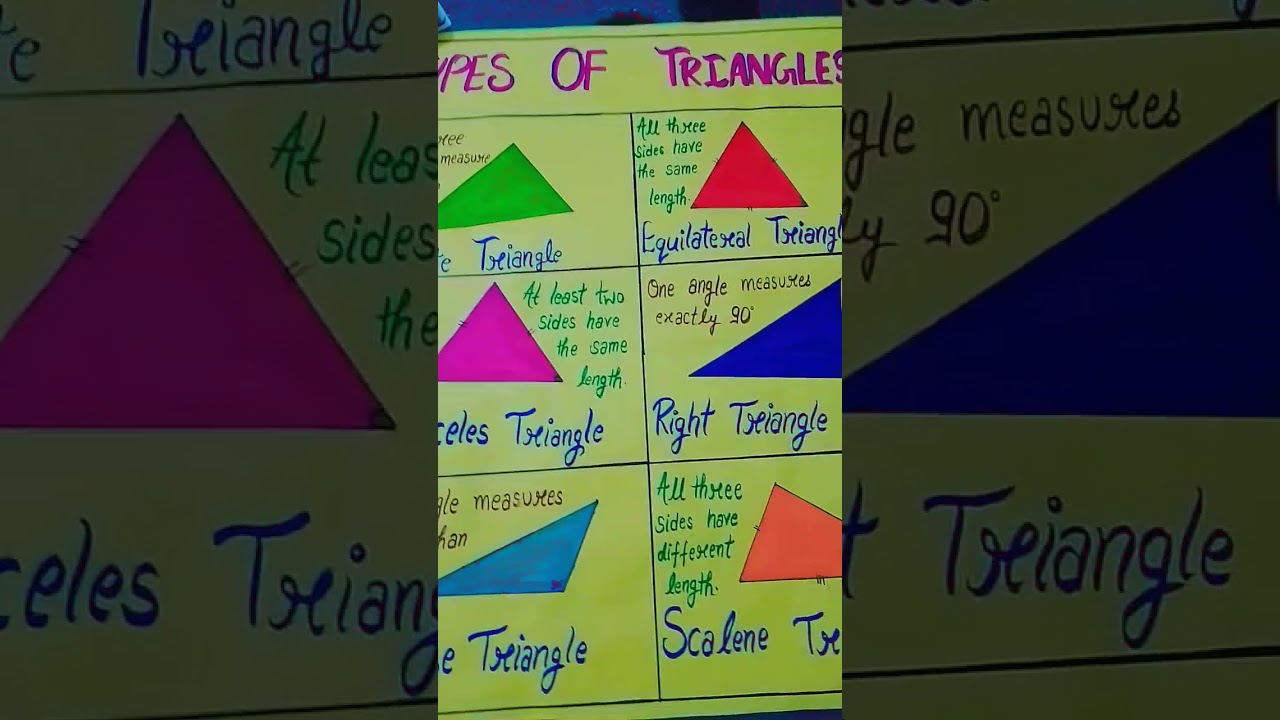 YPES OF TRIANGLES
ree
measure
e Triangle
All three
sides have
the same
length.
Equilateral Triangl
At least two
sides have
the same
length.
celes Triangle
One angle measures
exactly 90°
Right Triangle
gle measures
han
e Triangle
All three
sides have
different
length.
Scalene Tr
e Triangle
At leas
sides
the
celes Trian
gle measures
ly 90°
t Triangle